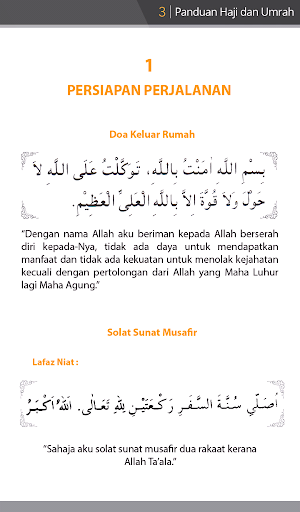 3 | Panduan Haji dan Umrah
1
PERSIAPAN PERJALANAN
Doa Keluar Rumah
بِسْمِ اللَّهِ اٰمَنْتُ بِاللَّهِ، تَوَكَّلْتُ عَلَى اللَّهِ لاَ
حَوْلَ وَلاَ قُوَّةَ اِلاَّ بِاللَّهِ الْعَلِيِّ الْعَظِيْمِ.
“Dengan nama Allah aku beriman kepada Allah berserah
diri kepada-Nya, tidak ada daya untuk mendapatkan
manfaat dan tidak ada kekuatan untuk menolak kejahatan
kecuali dengan pertolongan dari Allah yang Maha Luhur
lagi Maha Agung.”
Solat Sunat Musafir
Lafaz Niat :
اُصَلِّي سُنَّةَ السَّفَرِ رَكْعَتَيْنِ لِلّٰهِ تَعَالَى. اَللهُ اَكْبَرُ
“Sahaja aku solat sunat musafir dua rakaat kerana
Allah Ta’ala.”